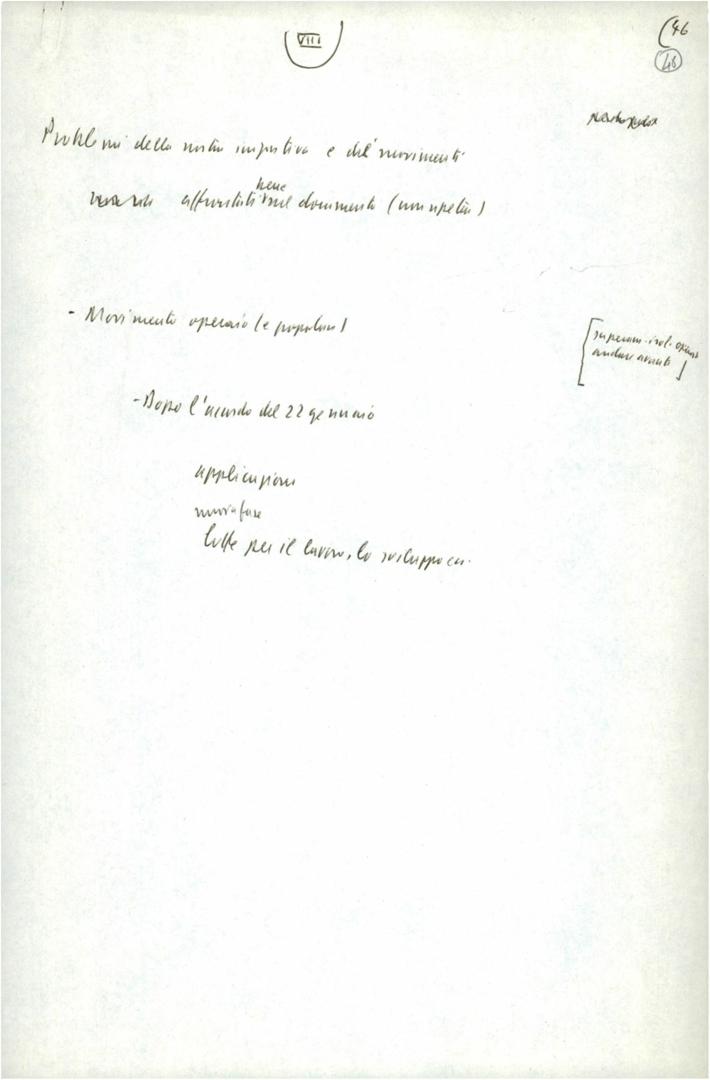 VIII
46
46
Problemi della nostra iniziativa e del movimenti
affrontati bene nel documento (non ripeto)
- Movimento operaio (e popolare)
[superam. isol. operaio
andare avanti]
- Dopo l'accordo del 22 gennaio
applicazione
nuova fase
lotte per il lavoro, lo sviluppo ecc.